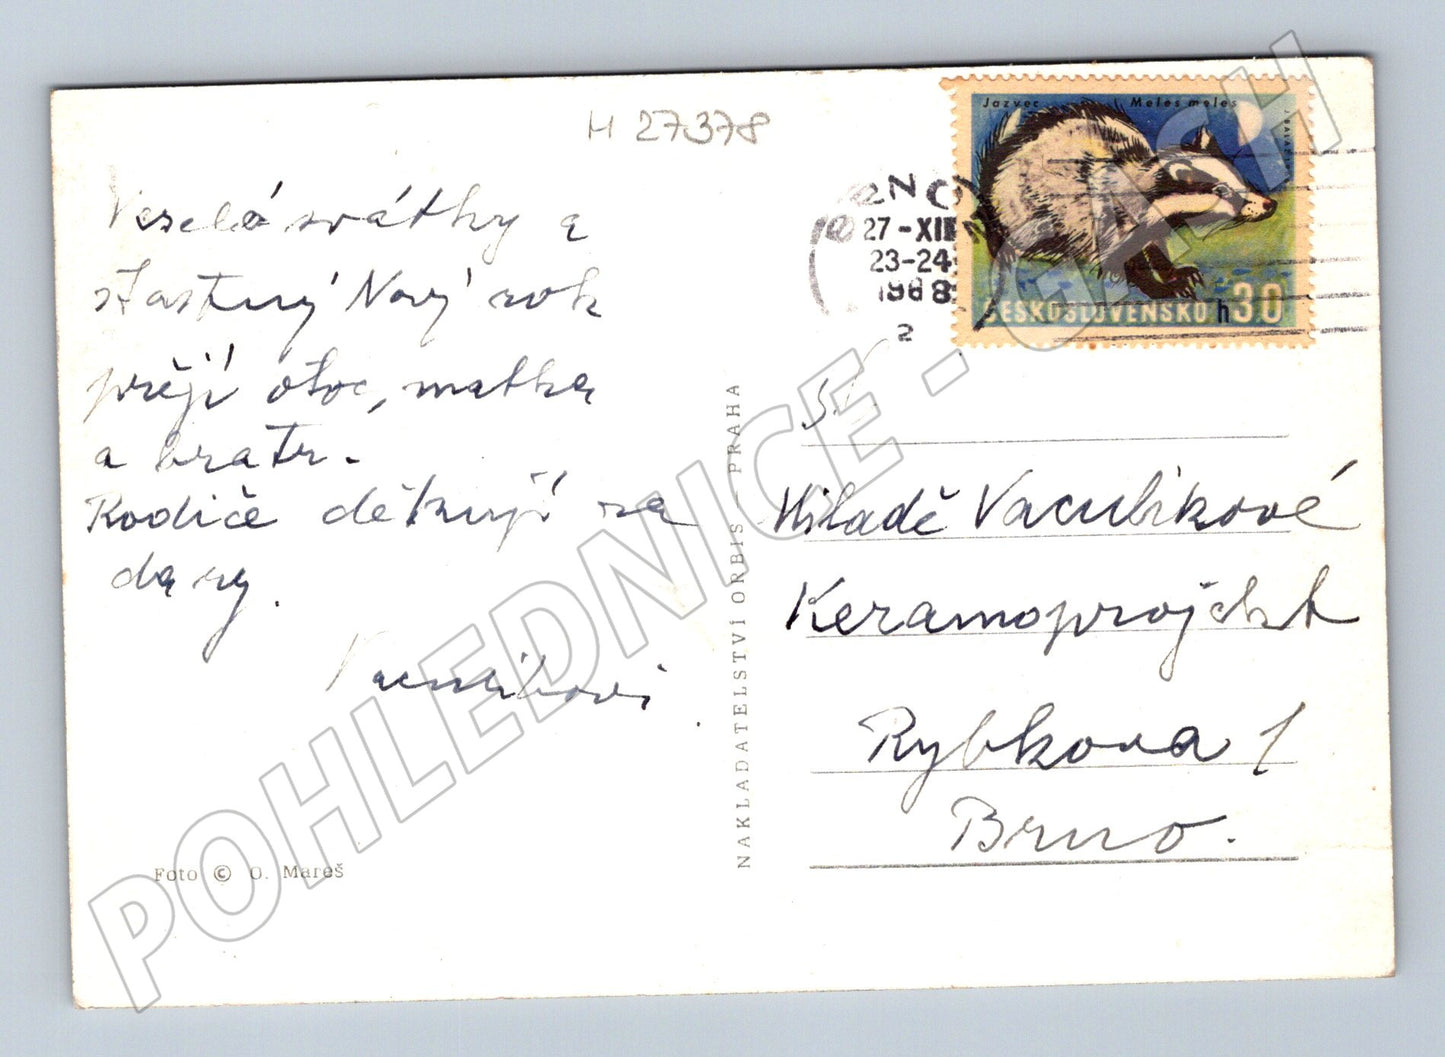 H 27378
Veselé svátky a
šťastný Nový rok
přejí otec, matka
a bratr.
Rodiče děkují za
dary.
Vaculíkovi.
Foto © O. Mareš
NAKLADATELSTVÍ ORBIS - PRAHA
Jazvec Meles meles
ČESKOSLOVENSKO h30
27-XII
23-24
1968
2
Sl.
Miladě Vaculíkové
Keramoprojekt
Rybkova 1
Brno.
POHLEDNICE - CASH